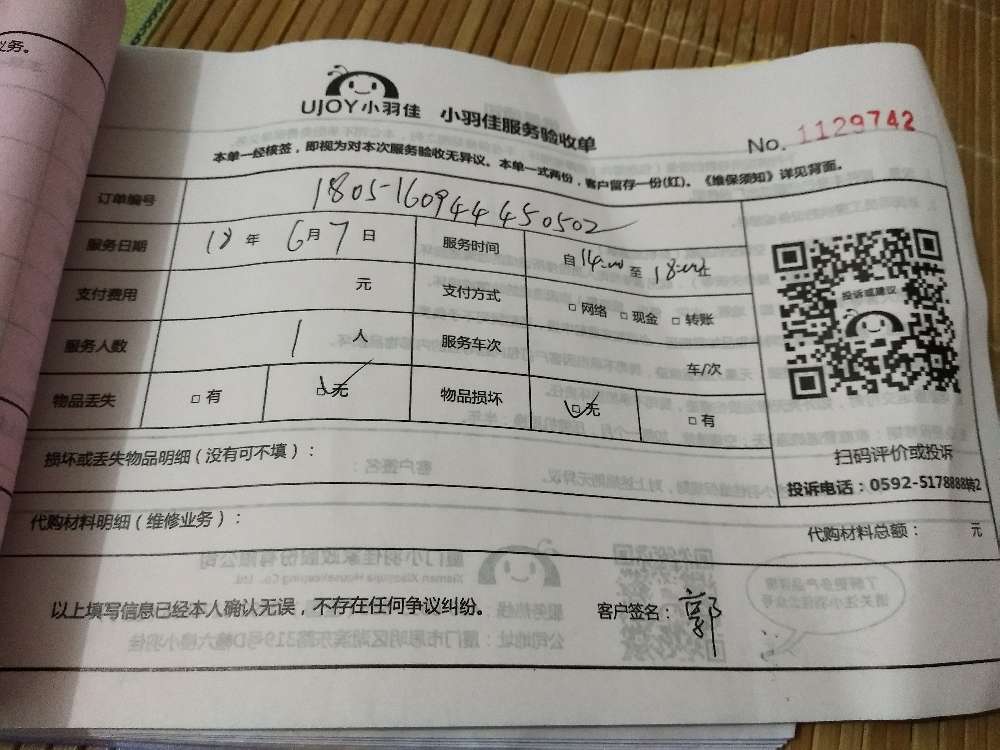 义务。
UJOY小羽佳 小羽佳服务验收单 No. 1129742
本单一经核签，即视为对本次服务验收无异议。本单一式两份，客户留存一份(红)。《维保须知》详见背面。
订单编号 1805160944450502
服务日期 18 年 6 月 7 日 服务时间 自 14:00 至 18:00止
支付费用 元 支付方式 □ 网络 □ 现金 □ 转账
投诉或建议
服务人数 1 人 服务车次 车/次
物品丢失 □ 有 □ 无 物品损坏 □ 无 □ 有
扫码评价或投诉
损坏或丢失物品明细（没有可不填）：
投诉电话：0592-5178888转2
代购材料明细（维修业务）： 代购材料总额： 元
以上填写信息已经本人确认无误，不存在任何争议纠纷。 客户签名：郭